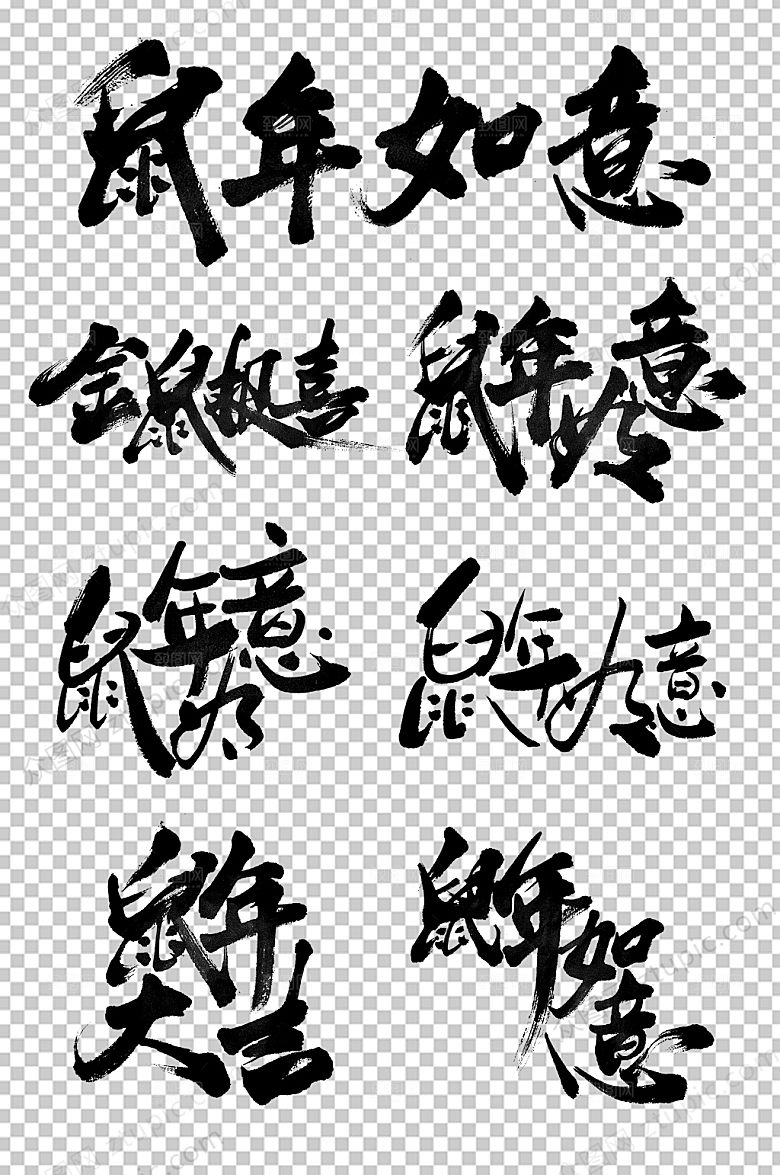 鼠年如意
金鼠报喜
鼠年如意
鼠年如意
鼠年如意
鼠年大吉
鼠年如意
众图网 ztupic.com